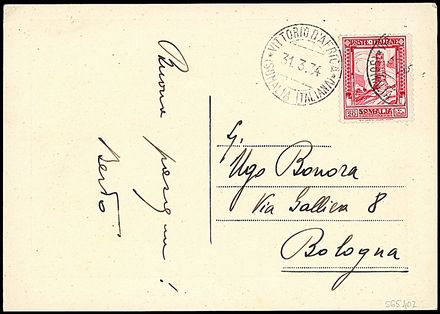 Buona
pasqua!
Berto
VITTORIO D'AFRICA
31.3.34
(SOMALIA ITALIANA)
POSTE ITALIANE
SOMALIA
Ugo Bonora
Via Galliera 8
Bologna
565402